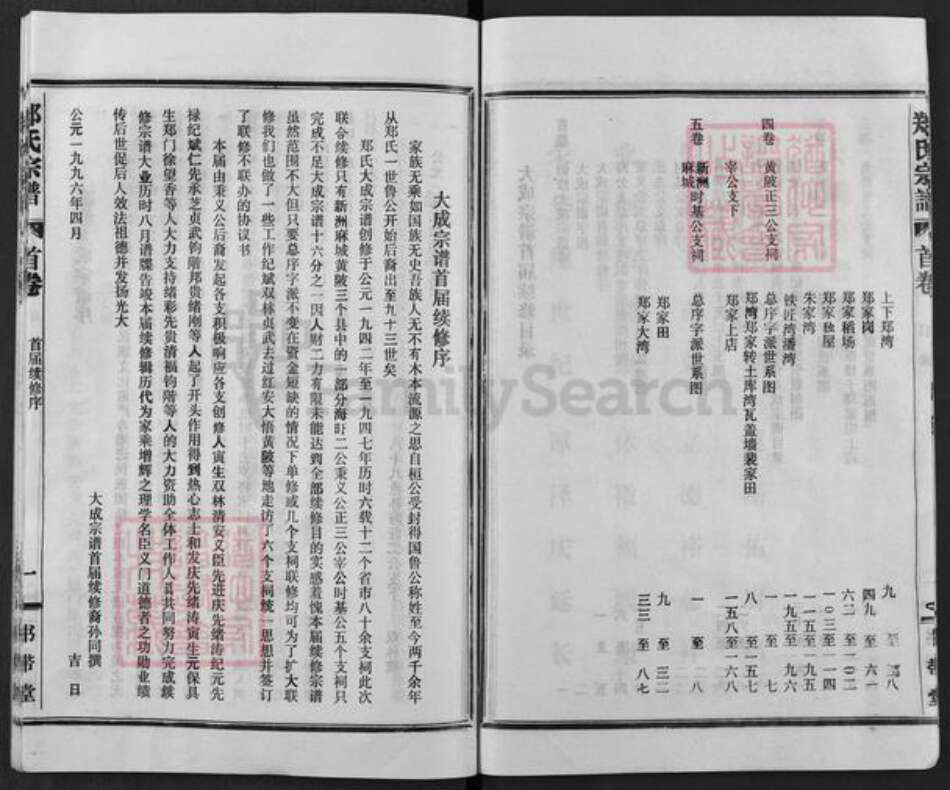 郑氏宗谱
首卷
上下郑湾 九 至 三八
郑家岗 四九 至 六一
郑家稻场 六二 至 一〇二
郑家独屋 一〇三 至 一一四
朱家湾 一一五 至 一九五
铁匠湾潘湾 一九五 至 一九六
四卷 黄陂正三公支祠
总序字派世系图 一 至 七
郑湾郑家转土库湾瓦盖墙裴家田 八 至 一五七
宰公支下
郑家上店 一五八 至 一六八
五卷 新洲麻城时基公支祠
总序字派世系图 一 至 八
郑家田 九 至 三二
郑家大湾 三三 至 八七
大成宗谱首届续修序
家族无乘如国族无史吾族人无不有木本流源之思自桓公受封得国鲁公称姓至今两千余年
从郑氏一世鲁公开始后裔出至九十三世矣
郑氏大成宗谱创修于公元一九四二年至一九四七年历时六载十二个省市八十余支祠此次
联合续修只有新洲麻城黄陂三个县中的一部分海旺二公秉义公正三公宰公时基公五个支祠只
完成不足大成宗谱十六分之一因人财二力有限未能达到全部续修目的实感羞愧本届续修宗谱
虽然范围不大但只要总序字派不变在资金短缺的情况下单修或几个支祠联修均可为了扩大联
修我们也做了一些工作纪斌双林贞武去过红安大悟黄陂等地走访了六个支祠统一思想并签订
了联修不联办的协议书
本届由秉义公后裔发起各支积极响应各支创修人寅生双林清安义臣先进庆先绪涛纪元先
禄纪斌仁先承芝贞武钧阶邦贵绪刚等人起了开头作用得到热心志士和发庆先绪涛寅生元保具
生郑门徐望香等人大力支持绪彩先贵清福钧阶等人的大力资助全体工作人员共同努力完成续
修宗谱大业历时八月谱牒告竣本届续修辑历代为家乘增辉之理学名臣义门道德者之功勋业绩
传后世促后人效法祖德并发扬光大
大成宗谱首届续修裔孙同撰
公元一九九六年四月 吉 日
郑氏宗谱
首卷
首届续修序
一
书带堂
FamilySearch